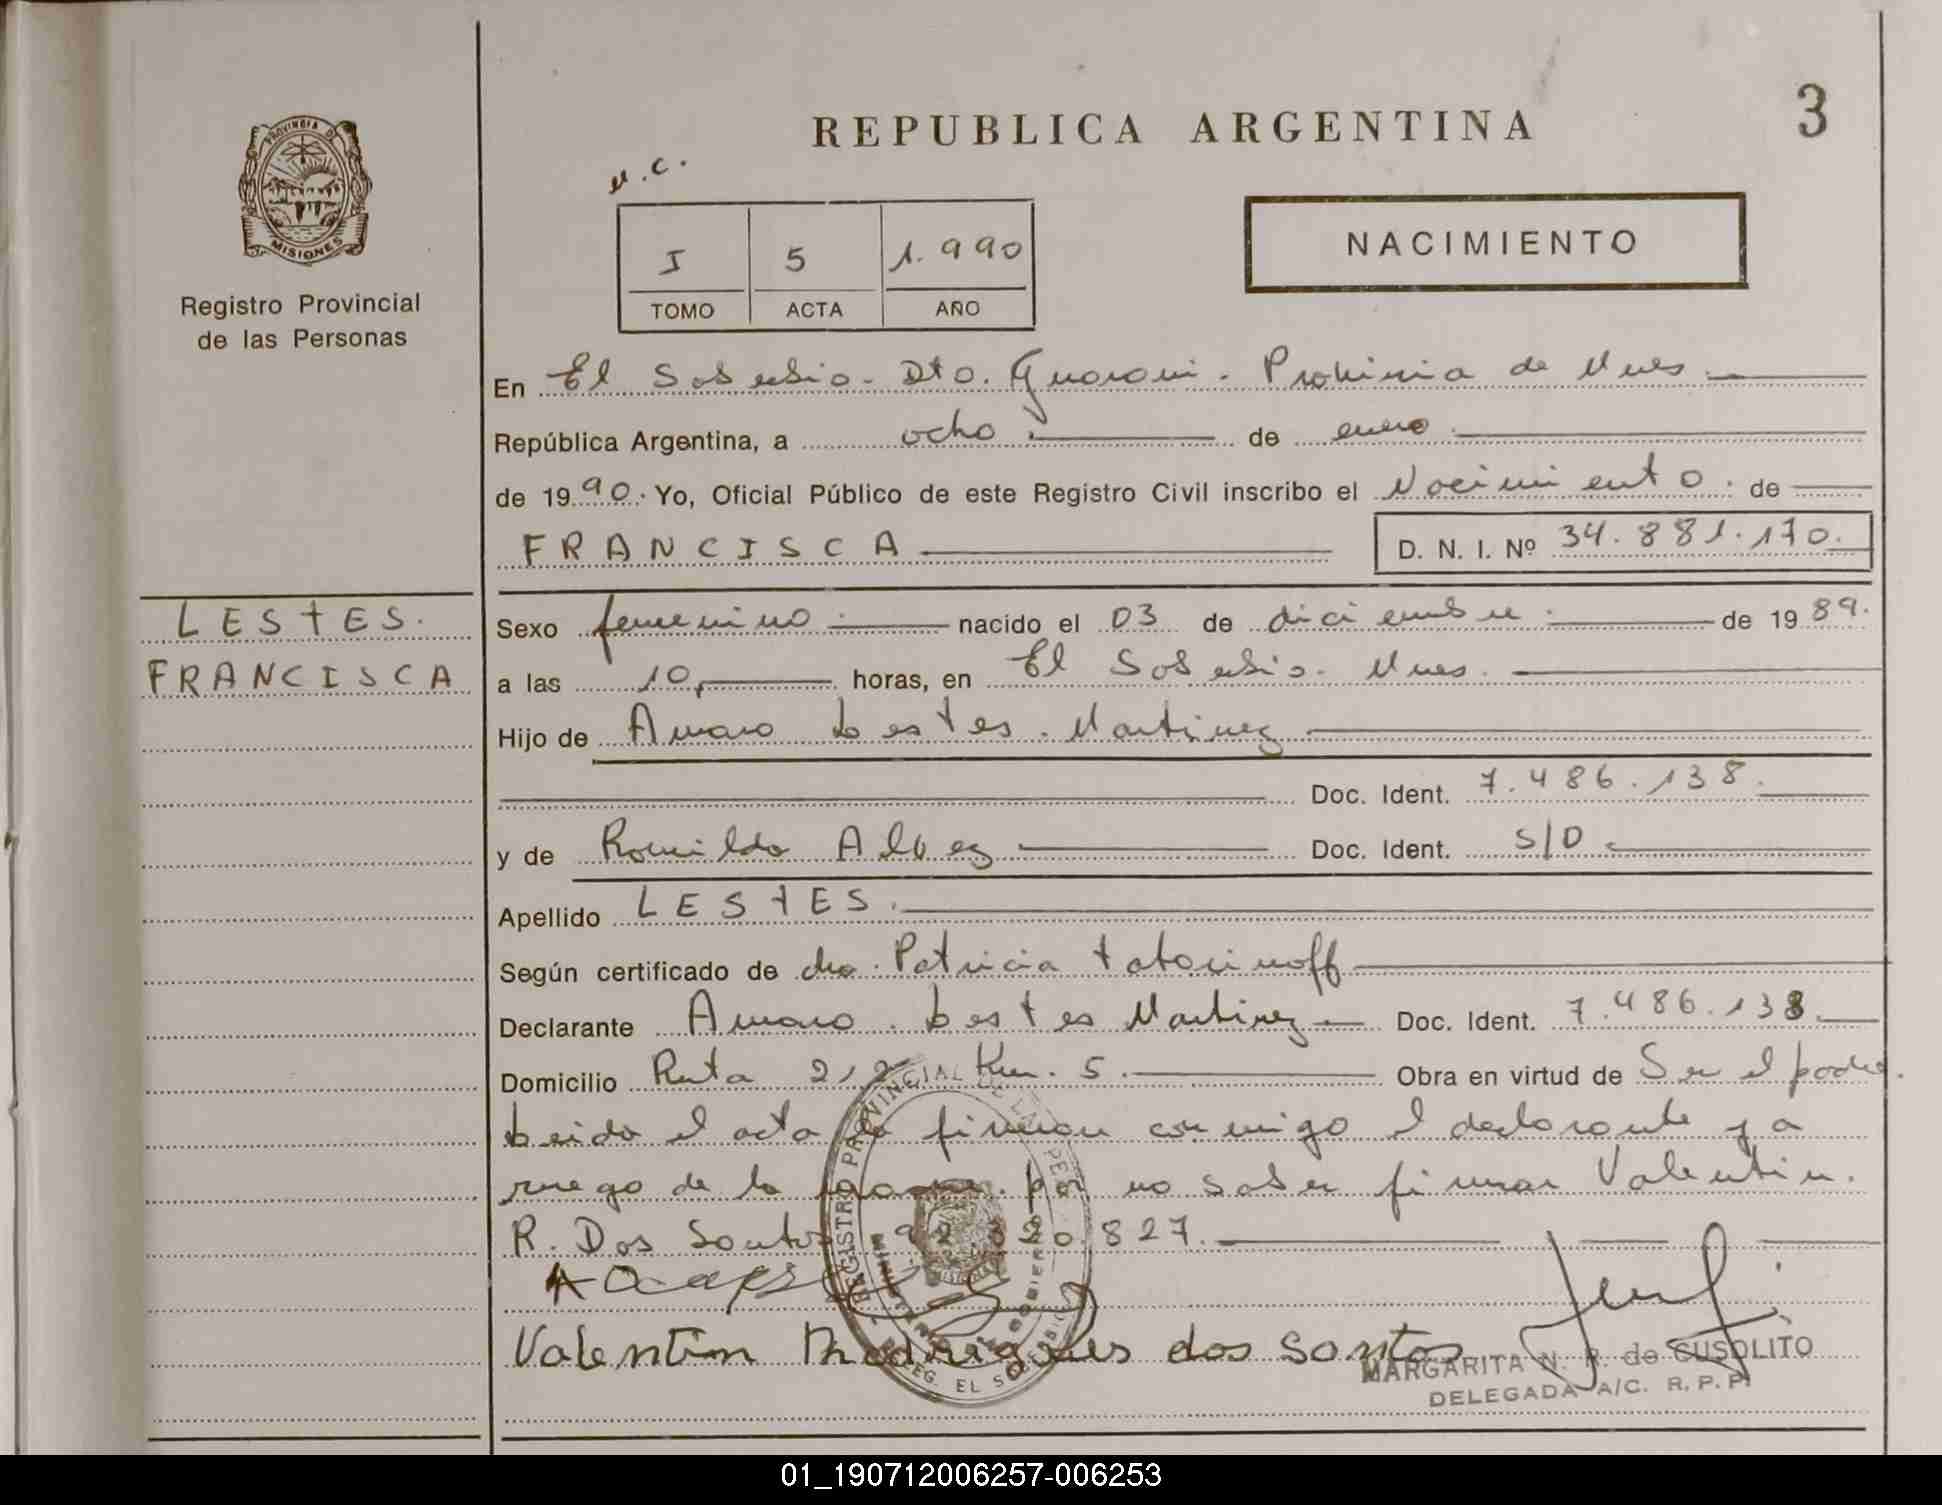 REPUBLICA ARGENTINA
3
PROVINCIA D
MISIONES
Registro Provincial
de las Personas
I 5 1.990
TOMO ACTA AÑO
NACIMIENTO
En El Soberbio. Dto. Guarani. Provincia de Mnes.
República Argentina, a ocho. de enero.
de 1990. Yo, Oficial Público de este Registro Civil inscribo el Nacimiento. de
FRANCISCA D. N. I. Nº 34.881.170.
LESTES.
FRANCISCA
Sexo femenino. nacido el 03 de diciembre. de 1989.
a las 10, horas, en El Soberbio. Mnes.
Hijo de Amaro Lestes. Martinez
Doc. Ident. 7.486.138.
y de Romilda Alvez Doc. Ident. S/D.
Apellido LESTES.
Según certificado de dra. Patricia Tatarinoff
Declarante Amaro. Lestes Martinez Doc. Ident. 7.486.138.
Domicilio Ruta 212 Km. 5. Obra en virtud de Ser el padre.
Leida el acta la firman conmigo el declarante y a
ruego de la por no saber firmar Valentin.
R. Dos Santos 92.320.827.
Valentin Rhodrigues dos Santos
MARGARITA N. R. de SUSOLITO
DELEGADA A/C. R. P. P.
REGISTRO PROVINCIAL DE LAS PER
REG. EL SOBERBIO
01_190712006257-006253